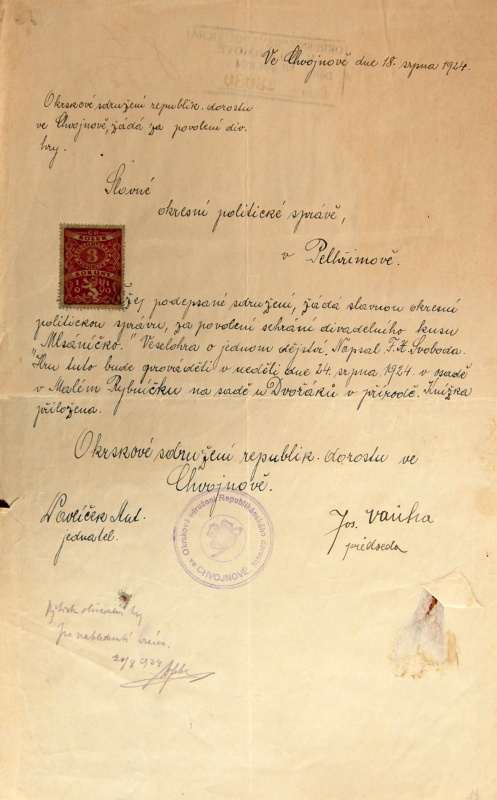 Ve Chvojnově dne 18. srpna 1924.
Okrskové sdružení republik. dorostu
ve Chvojnově, žádá za povolení div.
hry.
Slavné
okresní politické správě,
v Pelhřimově.
KOLEK
3
KORUNY
1919
Nížej podepsané sdružení, žádá slavnou okresní
politickou správu, za povolení sehrání divadelního kusu
"Mlsáníčko." Veselohra o jednom dějství. Napsal F. X. Svoboda.
"Hru tuto bude prováděti v neděli dne 24. srpna 1924. v osadě
v Malém Rybníčku na sadě u Dvořáků v přírodě. Knížka
přiložena.
Okrskové sdružení republik. dorostu ve
Chvojnově.
Pavlíček Ant.
jednatel.
Okrskové sdružení Republikánského dorostu
ve CHVOJNOVĚ
Jos. Vaňha
předseda
20/8 1924